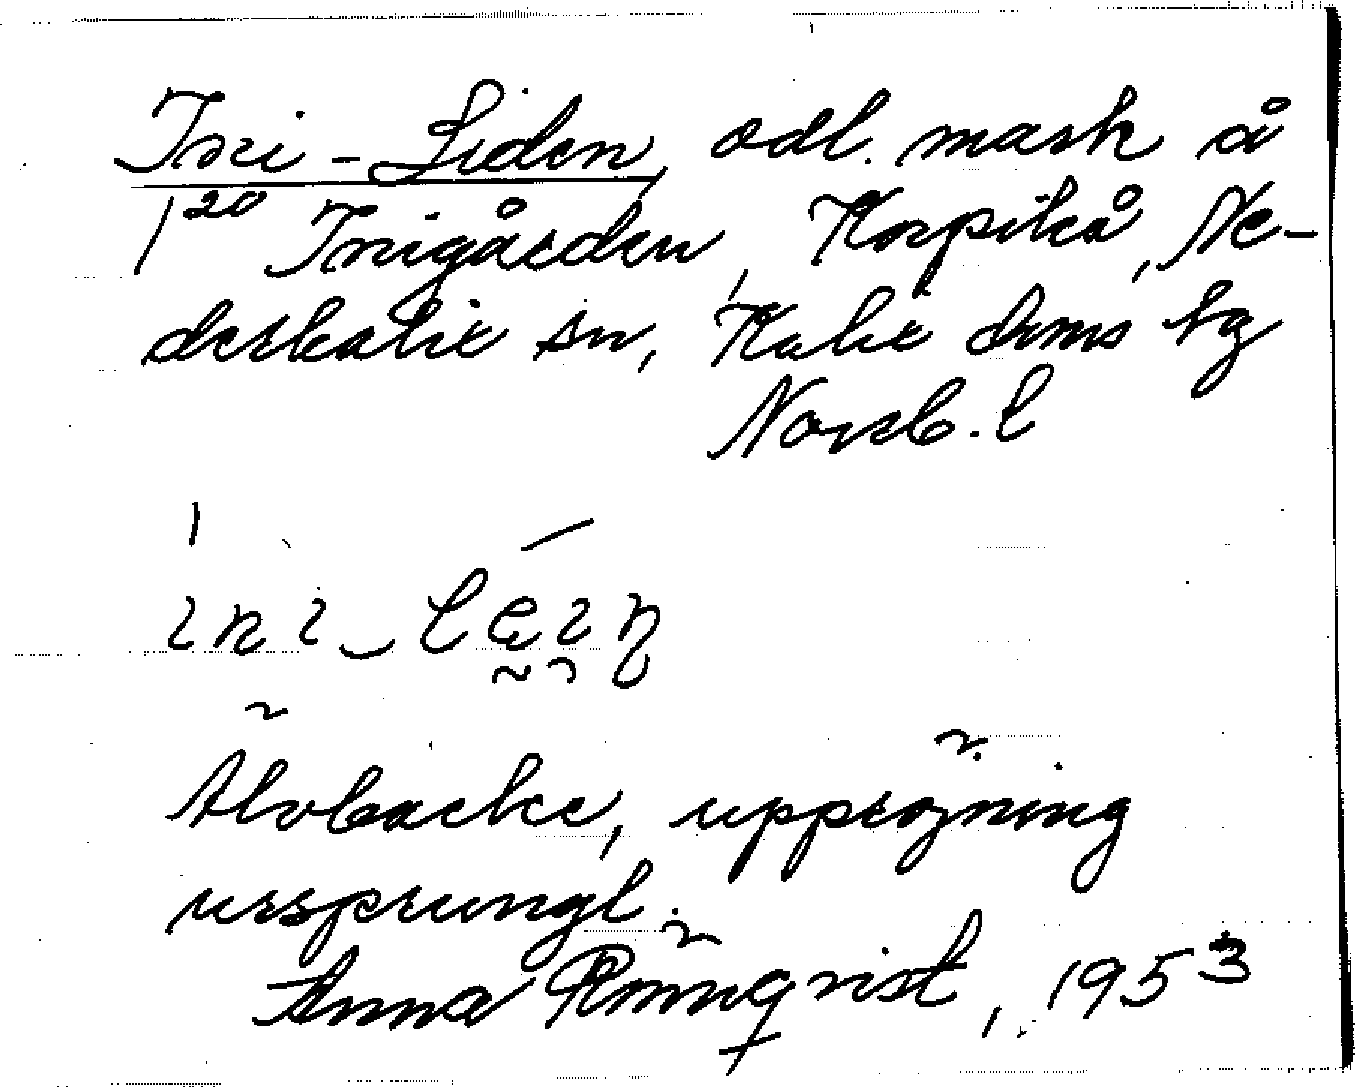 Ini-Liden, odl. mark å
1²⁰ Inigården, Korpikå, Ne-
derkalix sn, Kalix doms bg
Norrb. l
Älvbacke, uppröjning
ursprungl.
Anna Rönnqvist, 1953